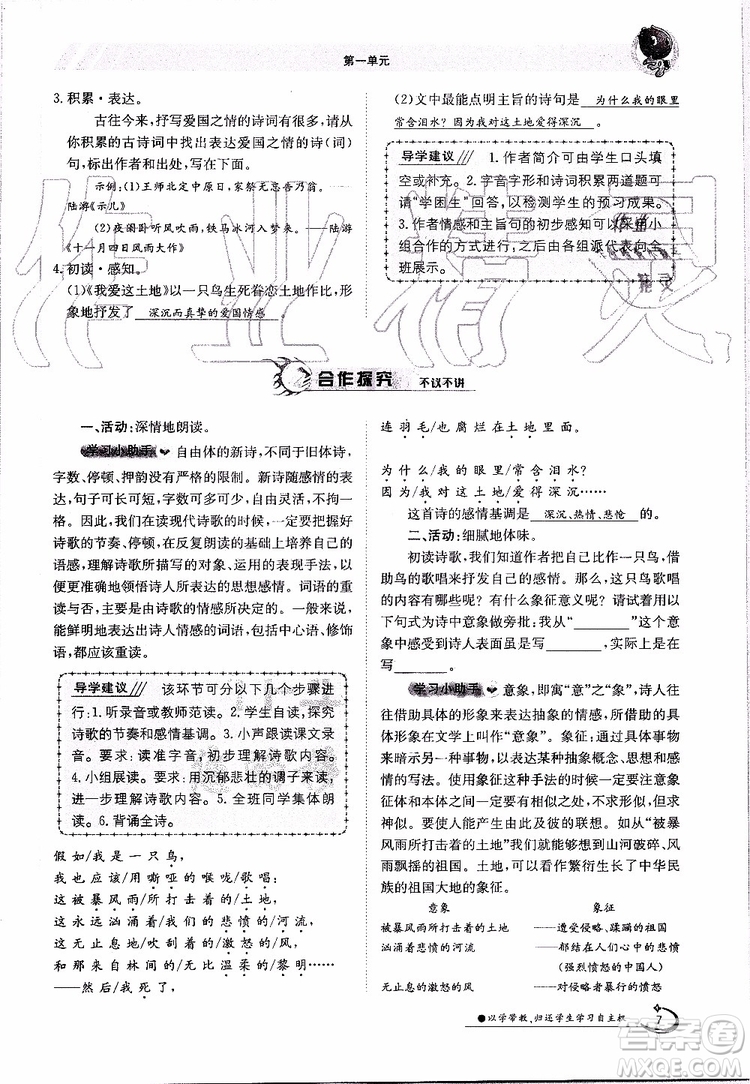 第一单元
3. 积累·表达。
古往今来，抒写爱国之情的诗词有很多，请从
你积累的古诗词中找出表达爱国之情的诗(词)
句，标出作者和出处，写在下面。
示例：(1)王师北定中原日，家祭无忘告乃翁。
陆游《示儿》
(2)夜阑卧听风吹雨，铁马冰河入梦来。－陆游
《十一月四日风雨大作》
4. 初读·感知。
(1)《我爱这土地》以一只鸟生死眷恋土地作比，形
象地抒发了 深沉而真挚的爱国情感 。
(2)文中最能点明主旨的诗句是 为什么我的眼里
常含泪水？因为我对这土地爱得深沉 。
导学建议 1. 作者简介可由学生口头填
空或补充。2. 字音字形和诗词积累两道题可
请“学困生”回答，以检测学生的预习成果。
3. 作者情感和主旨句的初步感知可以采用小
组合作的方式进行，之后由各组派代表向全
班展示。
合作探究 不议不讲
一、活动：深情地朗读。
学习小助手 自由体的新诗，不同于旧体诗，
字数、停顿、押韵没有严格的限制。新诗随感情的表
达，句子可长可短，字数可多可少，自由灵活，不拘一
格。因此，我们在读现代诗歌的时候，一定要把握好
诗歌的节奏、停顿，在反复朗读的基础上培养自己的
语感，理解诗歌所吟咏的对象、运用的表现手法，以
便更准确地领悟诗人所表达的思想感情。词语的重
读与否，主要是由诗歌的情感所决定的。一般说来，
能鲜明地表达出诗人情感的词语，包括中心语、修饰
语，都应该重读。
导学建议 该环节可分以下几个步骤进
行：1. 听录音或教师范读。2. 学生自读，探究
诗歌的节奏和感情基调。3. 小声跟读课文录
音。要求：读准字音，初步理解诗歌内容。
4. 小组展读。要求：用沉郁悲壮的调子来读，
进一步理解诗歌内容。5. 全班同学集体朗
读。6. 背诵全诗。
假如/我是一只鸟，
我也应该/用嘶哑的喉咙/歌唱：
这被暴风雨/所打击着的/土地，
这永远汹涌着/我们的悲愤的/河流，
这无止息地/吹刮着的/激怒的/风，
和那来自林间的/无比温柔的/黎明……
——然后/我死了，
连羽毛/也腐烂在土地里面。
为什么/我的眼里/常含泪水？
因为/我对这土地/爱得深沉……
这首诗的感情基调是 深沉、热情、悲怆 。
二、活动：细腻地体味。
初读诗歌，我们知道作者把自己比作一只鸟，借
助鸟的歌唱来抒发自己的感情。那么，这只鸟歌唱
的内容有哪些呢？有什么象征意义呢？请试着用以
下句式为诗中意象做旁批：我从________这个意
象中体味出诗人表面是写________，实际上是在
写________。
学习小助手 意象，即寓“意”之“象”，诗人往
往借助具体的形象来表达抽象的情感，所借助的具
体形象在文学上叫作“意象”。象征：文学创作中，借
用某种具体事物，来表达某种抽象概念、思想和情感
的写法。我们在鉴赏这种手法时，要特别注意，象
征体和本体之间或者有相似之处，或者形不似，但求
神似。要求读者产生奇妙的联想。比如从“被暴
风雨所打击着的土地”可以联想到山河破碎、风
雨飘摇的祖国。土地，可以看作繁衍生长了中华民
族的祖国大地的象征。
意象 象征
被暴风雨所打击着的土地 ——遭受侵略、蹂躏的祖国
汹涌着的悲愤的河流 ——郁结在人们心中的悲愤
(强烈愤怒的中国人民)
无止息的激怒的风 ——对侵略者暴行的愤怒
●以学带教，归还学生学习自主权
7
作业精灵
答案圈
MXQE.COM